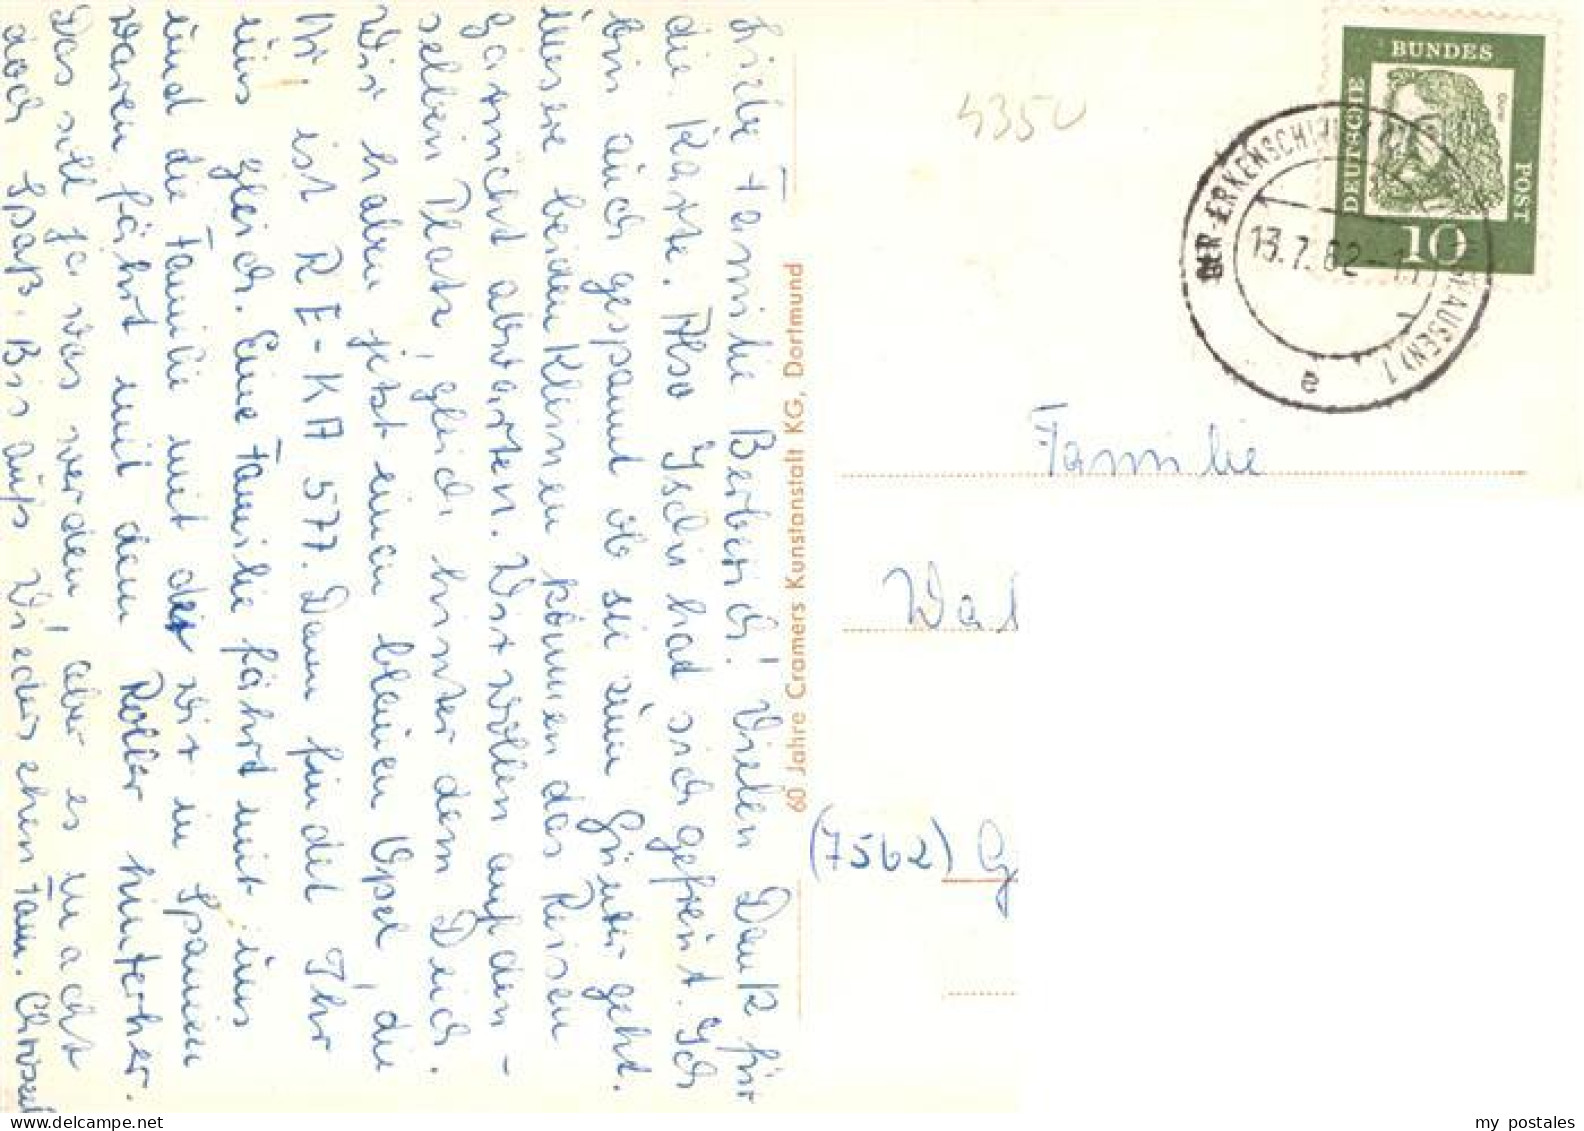 Liebe Familie Berberich! Vielen Dank für
die Karte. Also Ischi hat sich gefreut. Ich
bin auch gespannt ob sie zum Günter geht.
Unsere beiden Kleinen können das Reisen
garnicht abwarten. Wir wollen auf den-
selben Platz, gleich hinter dem Deich.
Wir haben jetzt einen blauen Opel, die
Nr ist RE-KA 577. Dann findet Ihr
uns gleich. Eine Familie fährt mit uns
und die Familie mit der wir in Spanien
waren fährt mit dem Roller hinterher.
Das soll ja was werden, aber es macht
doch Spaß. Bis aufs Wiedersehen Fam.
60 Jahre Cramers Kunstanstalt KG, Dortmund
4350
DEUTSCHE BUNDES POST
10
ER-ERKENSCHWICK
13.7.62
HAUSEN) 1
a
Familie
Wal
(7562) G
my postales